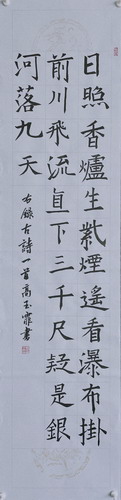 日照香爐生紫煙遙看瀑布掛
前川飛流直下三千尺疑是銀
河落九天
右錄古詩一首高玉霏書